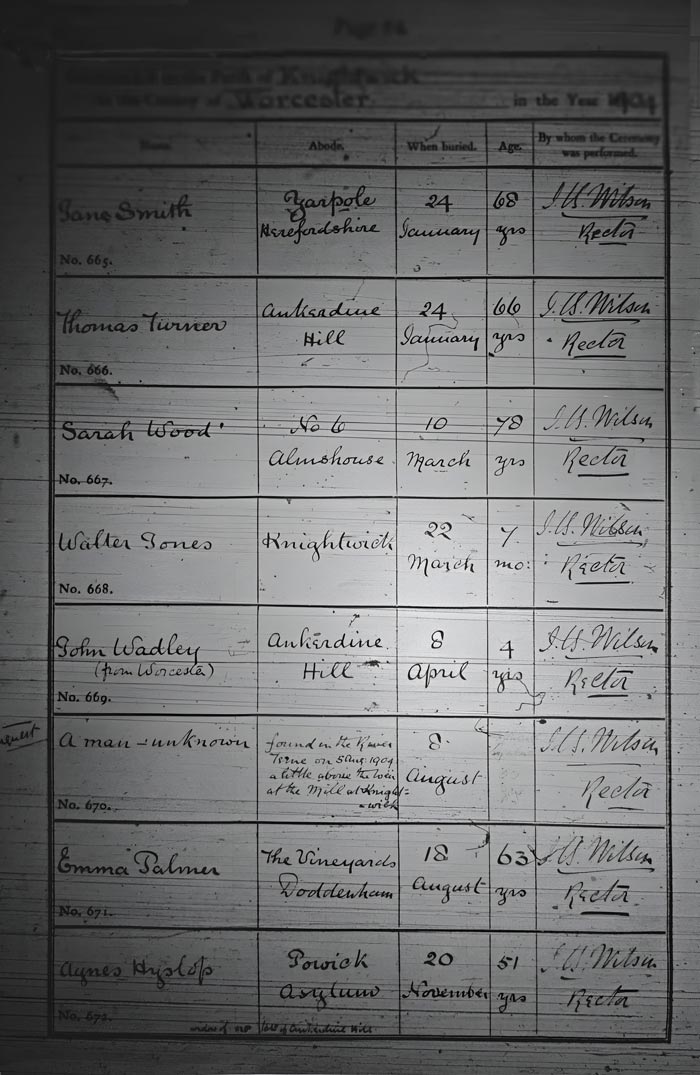 Page 84
in the Parish of Knightwick
in the County of Worcester in the Year 1904
Name. Abode. When buried. Age. By whom the Ceremony
was performed.
Jane Smith Yarpole 24 68 Wilson
Herefordshire January yrs Rector
No. 665.
Thomas Turner Ankerdine 24 66 Wilson
Hill January yrs Rector
No. 666.
Sarah Wood No 6 10 78 Wilson
Almshouse March yrs Rector
No. 667.
Walter Jones Knightwick 22 7 Wilson
March mo: Rector
No. 668.
John Wadley Ankerdine 8 4 Wilson
(from Worcester) Hill April yrs Rector
No. 669.
A man - unknown found in the River 8 Wilson
Teme on 5 Aug. 1904
a little above the Weir August
at the Mill at Knight= Rector
-wick
No. 670.
Emma Palmer The Vineyards 18 63 Wilson
Doddenham August yrs Rector
No. 671.
Agnes Hyslop Powick 20 51 Wilson
Asylum November yrs Rector
No. 672.
widow of of Ankerdine Hill